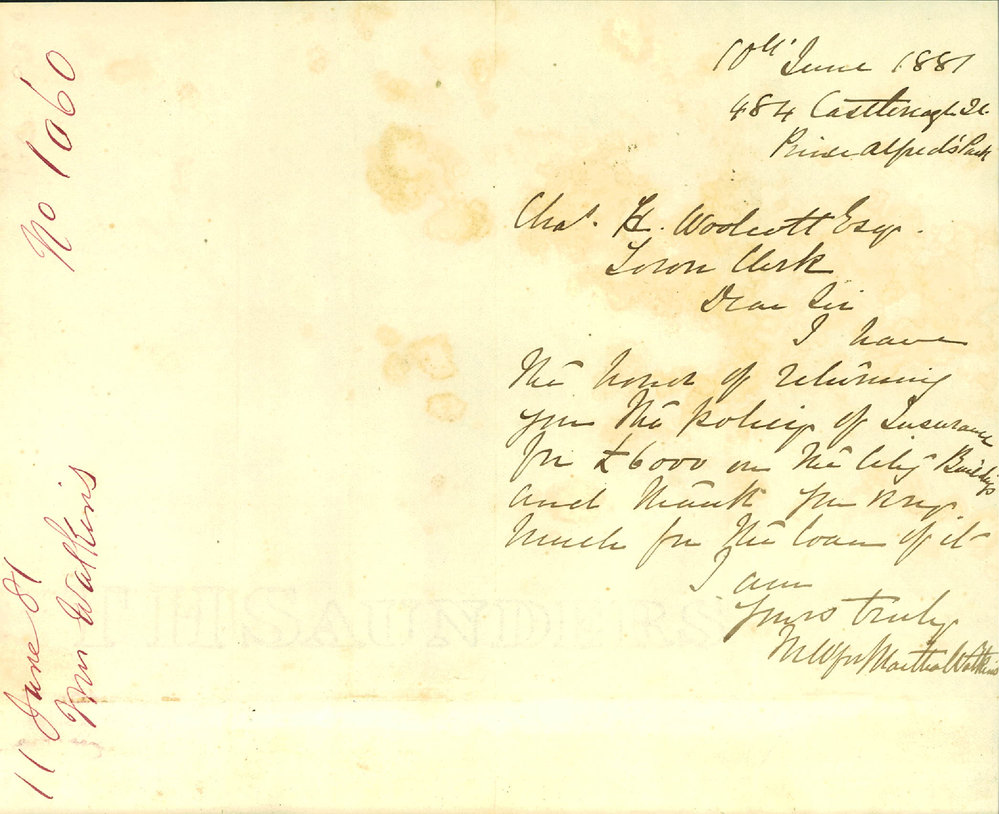 10th June 1881
484 Castlereagh St
Prince Alfred's Park
Chas. H. Woolcott Esqr.
Town Clerk
Dear Sir
I have
the honor of returning
you the policy of Insurance
for £6000 on the City Buildings
and thank you very
much for the loan of it
I am
Yours truly
Martha Watkins
No 1060
11 June 81
Mrs Watkins
T H SAUNDERS